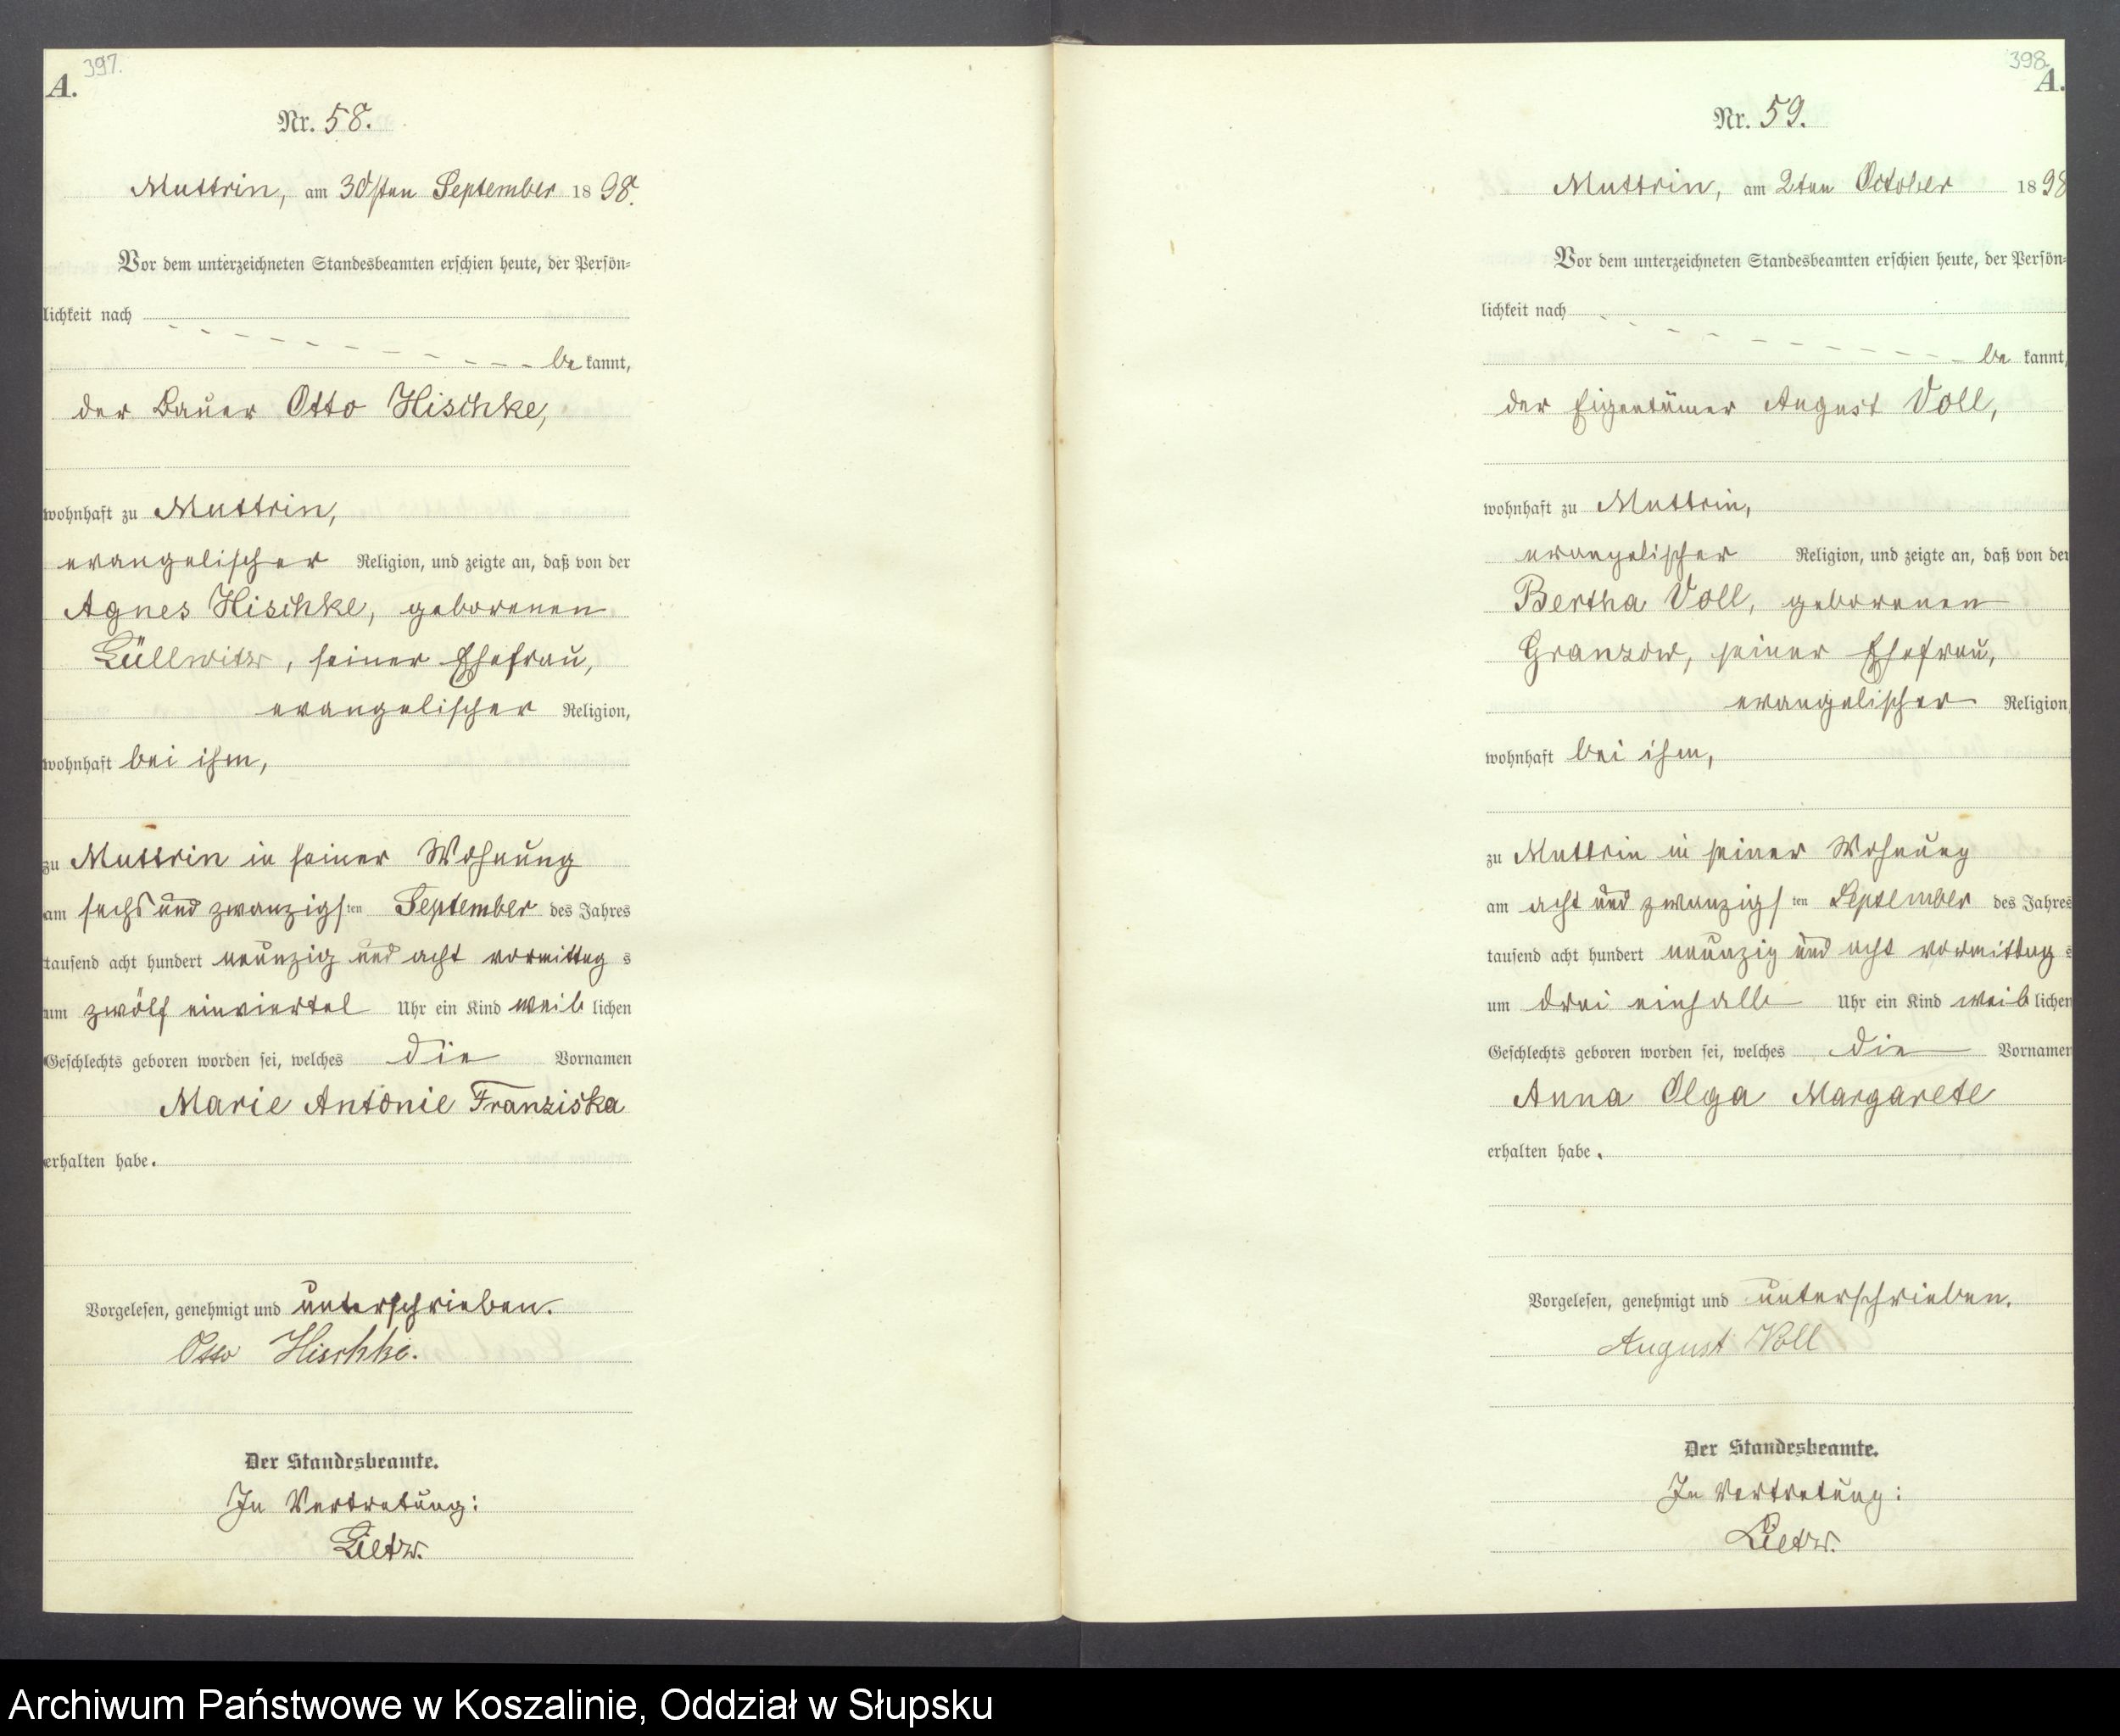 397.
A.
Nr. 58.
Muttrin, am 30sten September 1898.
Vor dem unterzeichneten Standesbeamten erschien heute, der Persön=
lichkeit nach
be kannt,
der Bauer Otto Hischke,
wohnhaft zu Muttrin,
evangelischer Religion, und zeigte an, daß von der
Agnes Hischke, geborenen
Lüllwitz, seiner Ehefrau,
evangelischer Religion,
wohnhaft bei ihm,
zu Muttrin in seiner Wohnung
am sechs und zwanzigsten September des Jahres
tausend acht hundert neunzig und acht vormittags
um zwölf einviertel Uhr ein Kind weiblichen
Geschlechts geboren worden sei, welches die Vornamen
Marie Antonie Franziska
erhalten habe.
Vorgelesen, genehmigt und unterschrieben.
Otto Hischke.
Der Standesbeamte.
In Vertretung:
Lietz.
398.
A.
Nr. 59.
Muttrin, am 2ten October 1898
Vor dem unterzeichneten Standesbeamten erschien heute, der Persön=
lichkeit nach
be kannt,
der Eigentümer August Voll,
wohnhaft zu Muttrin,
evangelischer Religion, und zeigte an, daß von der
Bertha Voll, geborenen
Granzow, seiner Ehefrau,
evangelischer Religion,
wohnhaft bei ihm,
zu Muttrin in seiner Wohnung
am acht und zwanzigsten September des Jahres
tausend acht hundert neunzig und acht vormittags
um drei einhalb Uhr ein Kind weiblichen
Geschlechts geboren worden sei, welches die Vornamen
Anna Olga Margarete
erhalten habe.
Vorgelesen, genehmigt und unterschrieben.
August Voll
Der Standesbeamte.
In Vertretung:
Lietz.
Archiwum Państwowe w Koszalinie, Oddział w Słupsku